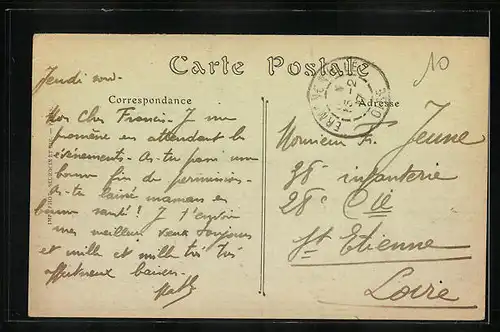 Carte Postale
10
Correspondance
Adresse
Jeudi soir
Mon Cher Francis - Je me
promène en attendant les
événements - As-tu passé une
bonne fin de permission -
As-tu laissé maman en
bonne santé ! Je t'envoie
mes meilleurs vœux toujours
et mille et mille très très
affectueux baisers
Monsieur Fr. Jeune
38e infanterie
28e Cie
St Etienne
Loire